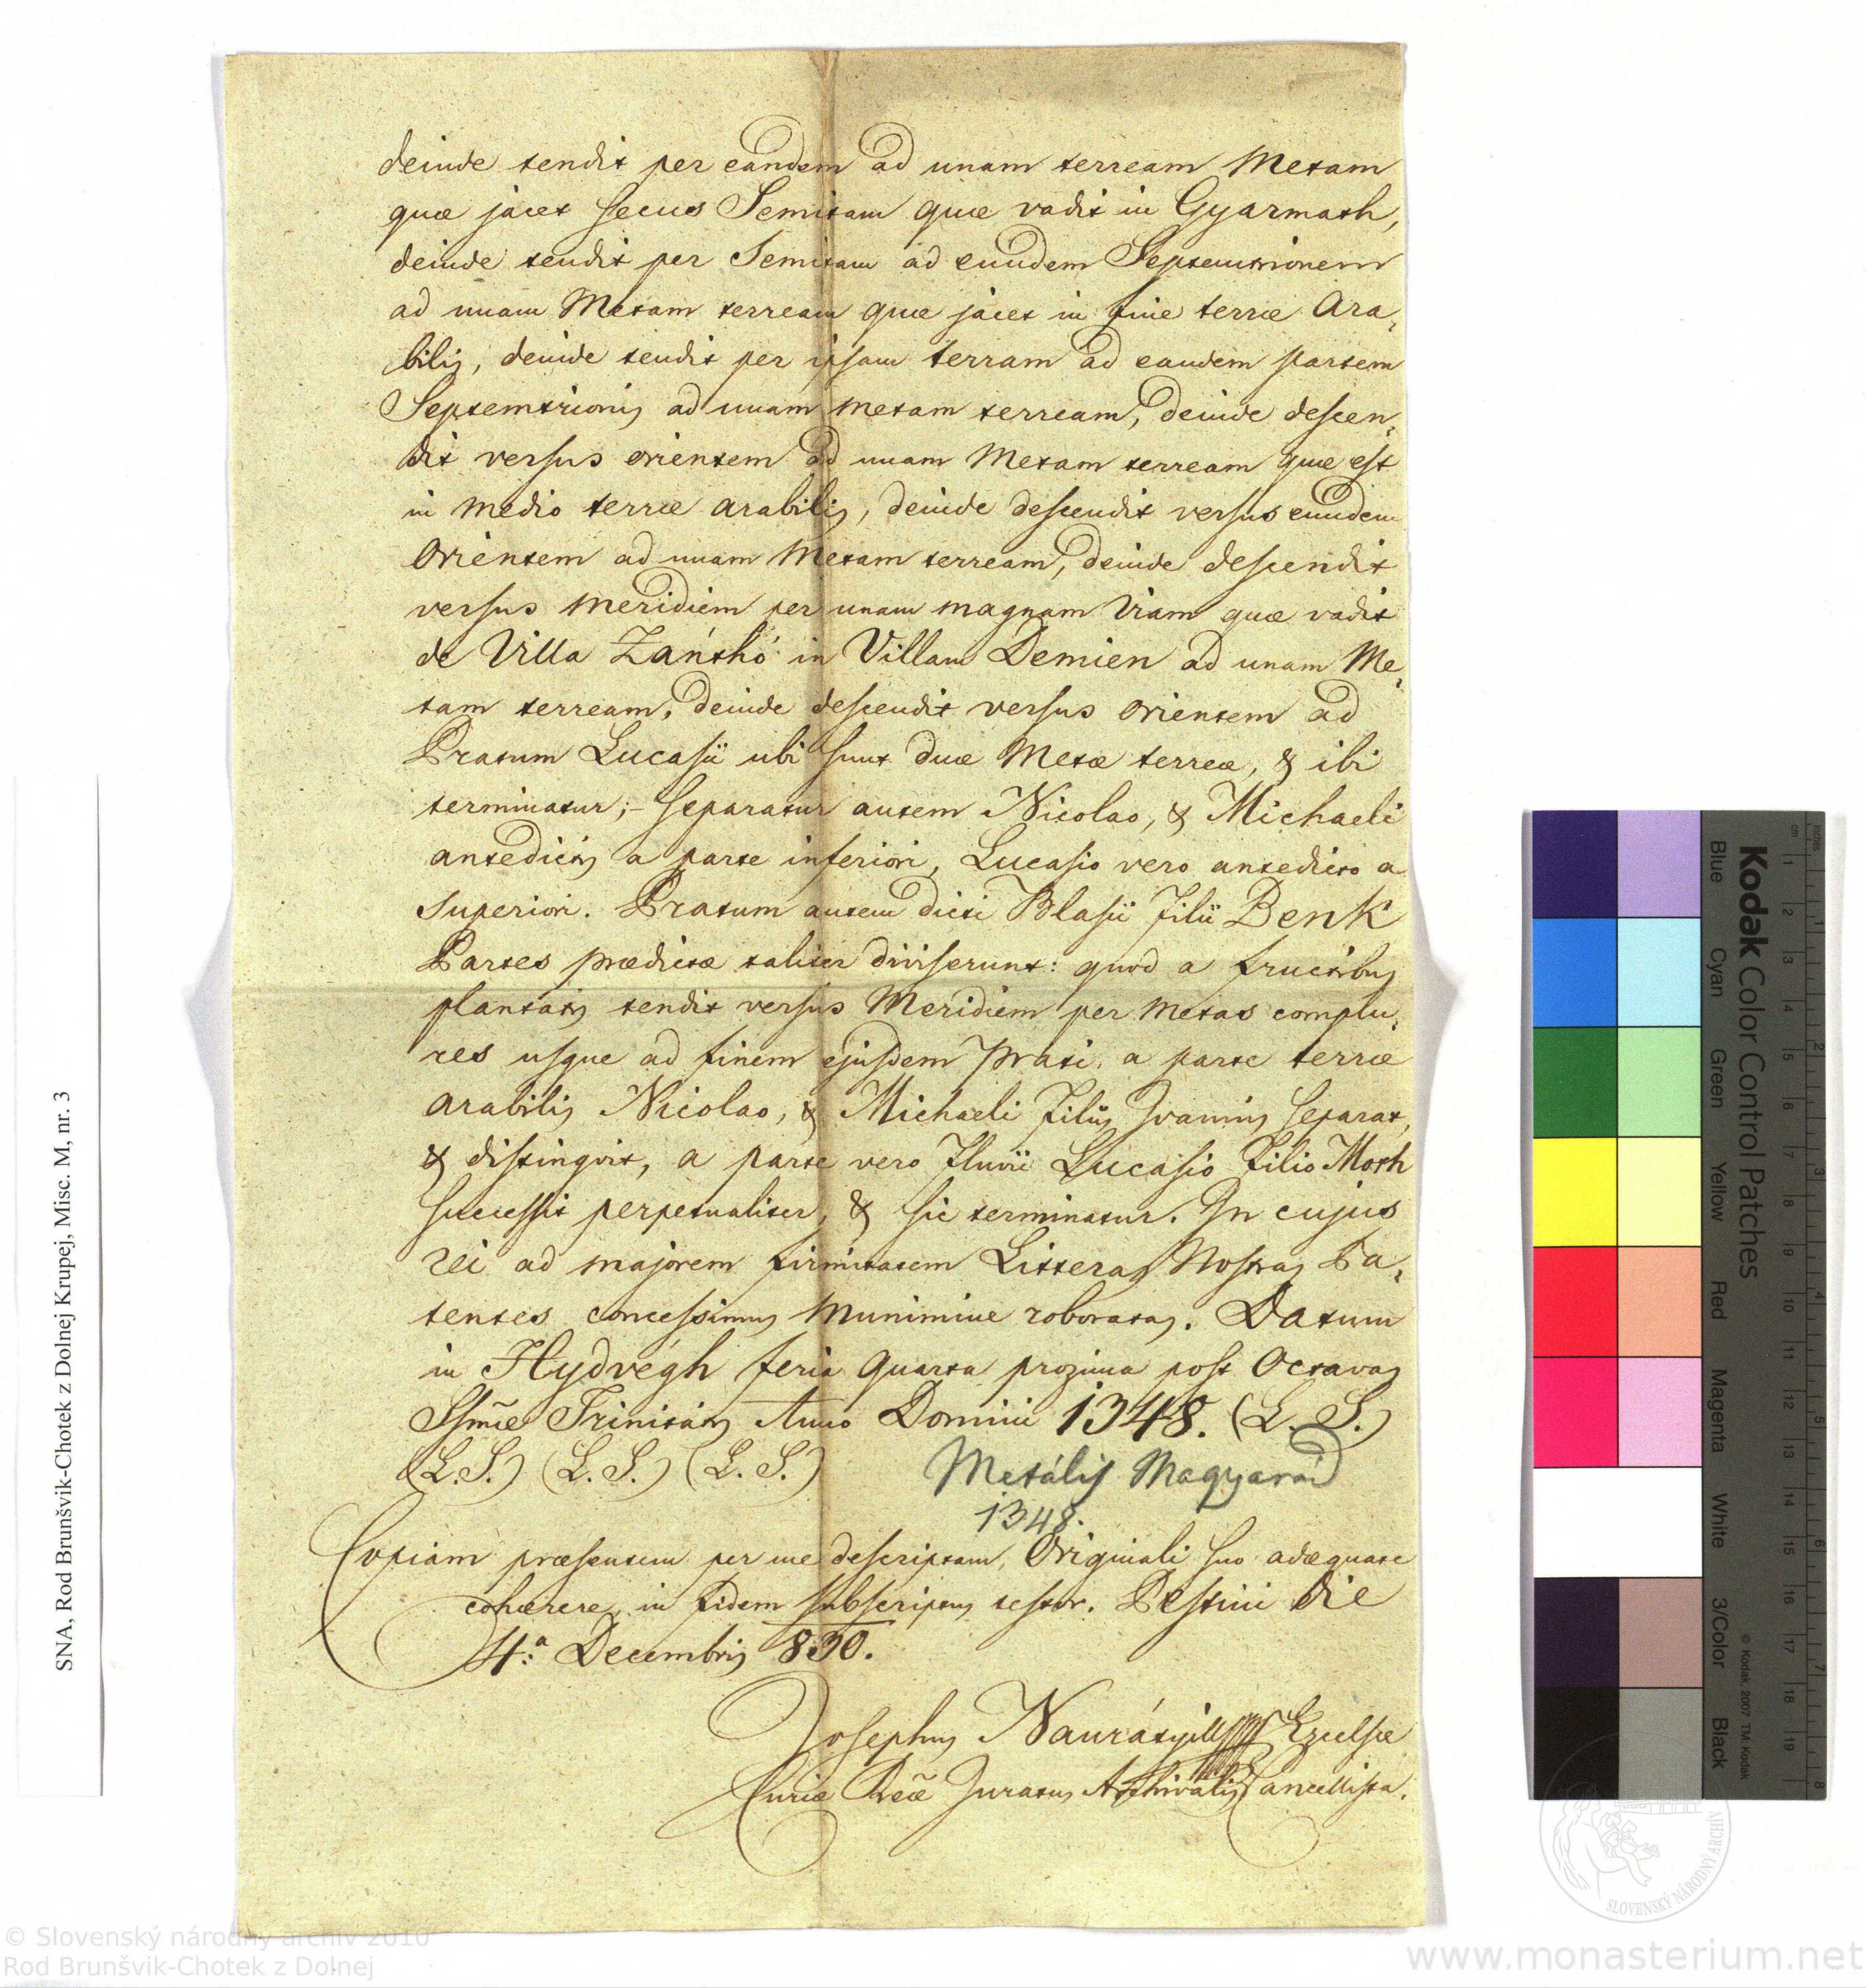 deinde tendit per eandem ad unam terream Metam
quæ jacet secus Semitam quæ vadit in Gyarmath,
deinde tendit per Semitam ad eundem Septemtrionem
ad unam Metam terream quæ jacet in fine terræ Ara,
bilis, deinde tendit per ipsam terram ad eandem partem
Septemtrionis ad unam metam terream, deinde descen,
dit versus orientem ad unam Metam terream quæ est
in medio terræ arabilis, deinde descendit versus eundem
Orientem ad unam Metam terream, deinde descendit
versus meridiem per unam magnam Viam quæ vadit
de Villa Zánthó in Villam Demien ad unam Me,
tam terream, deinde descendit versus orientem ad
Pratum Lucasii ubi sunt duæ Metæ terreæ, & ibi
terminatur;- separatur autem Nicolao, & Michaeli
antedictis a parte inferiori, Lucasio vero antedicto a
Superiori. Pratum autem dicti Blasii filii Benk
Partes prædictæ taliter diviserunt: quod a fructibus
plantatis tendit versus Meridiem per Metas complu,
res usque ad finem ejusdem prati, a parte terræ
arabilis Nicolao, & Michaeli filiis Ivannis separat,
& distingvit, a parte vero fluvii Lucasio filio Moth
successit perpetualiter, & sic terminatur. In cujus
rei ad majorem firmitatem Litteras Nostras Pa,
tentes concessimus Munimine roboratas. Datum
in Hydvégh feria quarta proxima post Octavas
Ssmæ Trinitatis Anno Domini 1348. (L. S.)
(L. S.) (L. S.) (L. S.)
Metális Magyarád
1348.
Copiam præsentem per me descriptam, Originali suo adæquate
cohærere, in fidem subscriptus testor. Pestini die
4.a Decembris 830.
Josephus Excelsæ
Curiæ Reæ Juratus Archivalis Cancellista.
SNA, Rod Brunšvik-Chotek z Dolnej Krupej, Misc. M, nr. 3
Kodak Color Control Patches
Blue Cyan Green Yellow Red Magenta White 3/Color Black
© Kodak, 2007 TM: Kodak
inches 1 2 3 4 5 6 7 8
cm 1 2 3 4 5 6 7 8 9 10 11 12 13 14 15 16 17 18 19
SLOVENSKÝ NÁRODNÝ ARCHÍV
© Slovenský národný archív 2010
Rod Brunšvik-Chotek z Dolnej
www.monasterium.net